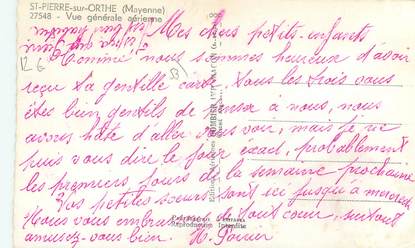 ST-PIERRE-sur-ORTHE (Mayenne)
27548 - Vue générale aérienne
12 G
Mes chers petits-enfants
Comme nous sommes heureux d'avoir
reçu la gentille carte, tous les trois vous
êtes bien gentils de penser à nous, nous
avons hâte d'aller vous voir, mais je ne
puis vous dire le jour exact, probablement
les premiers jours de la semaine prochaine
Vos petites soeurs sont ici jusqu'à mercredi
Nous vous embrassons de tout coeur, surtout
amusez-vous bien.
Reproduction Interdite